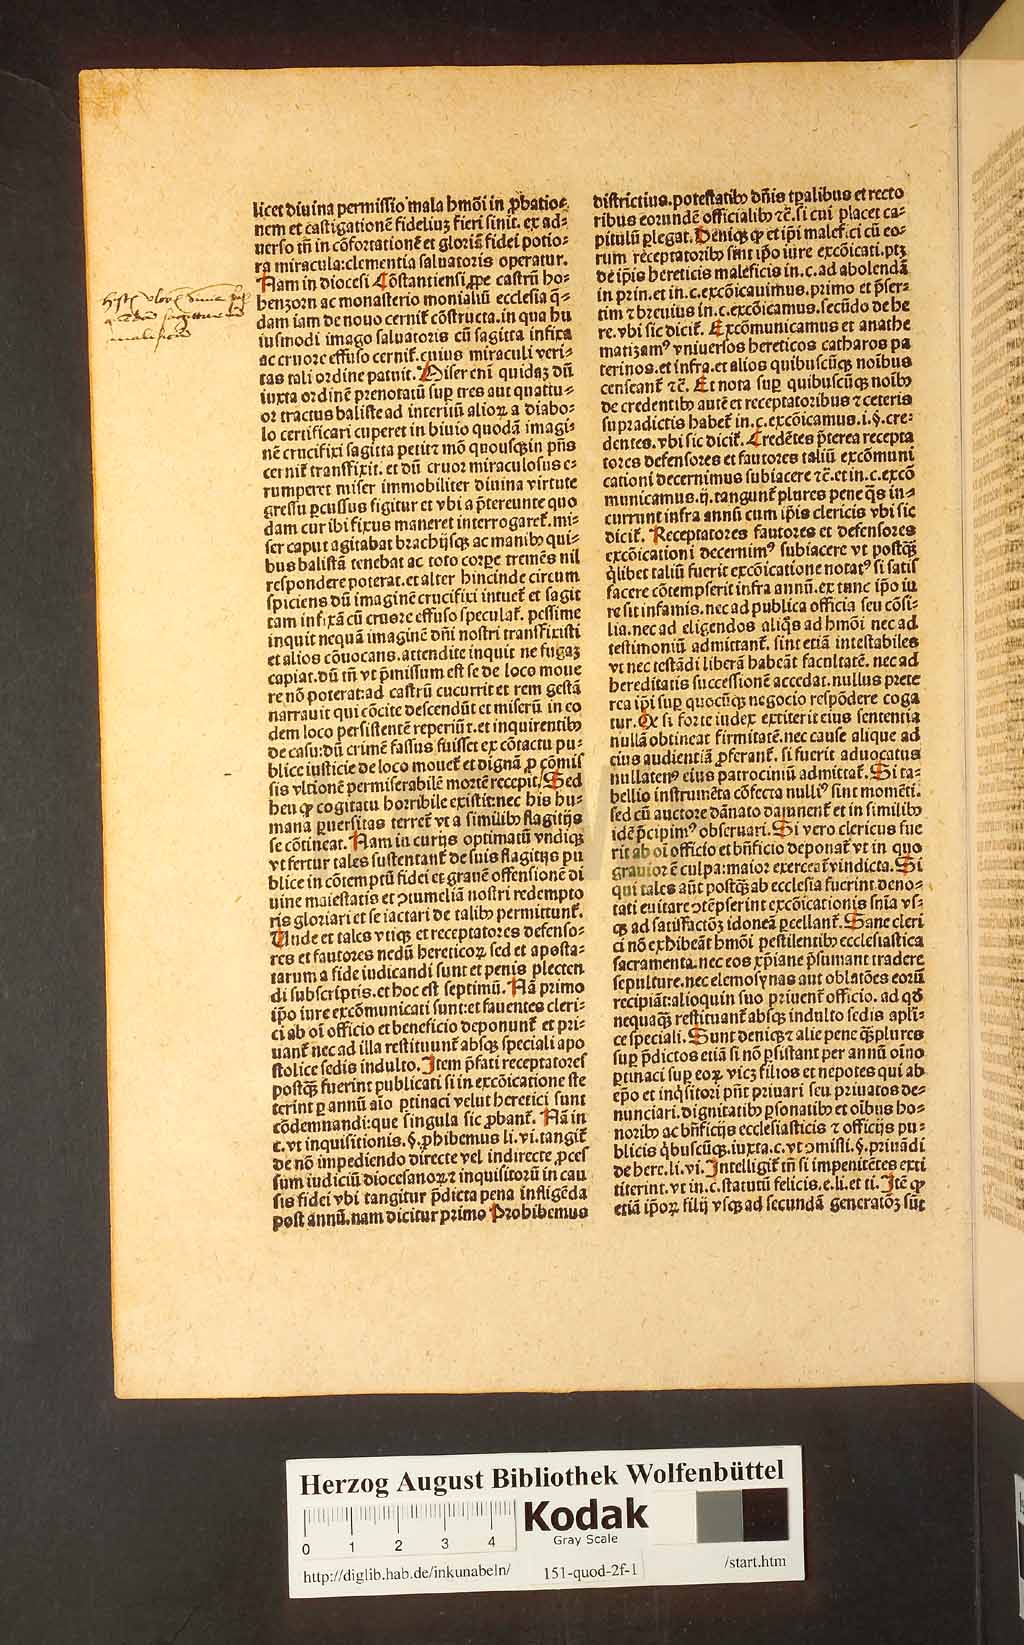 licet diuina permissio mala hmõi in ꝓbatio⸗
nem et castigationẽ fideliuʒ fieri sinit. ex ad⸗
uerso tñ in cõfortationẽ et gloriã fidei potio⸗
ra miracula: clementia saluatoris operatur.
Nam in diocesi Cõstantiensi, ꝓpe castrũ ho⸗
henzorn ac monasterio monialiũ ecclesia q̃⸗
dam iam de nouo cernit̃ cõstructa. in qua hu
iusmodi imago saluatoris cũ sagitta infixa
ac cruore effuso cernit̃. cuius miraculi veri⸗
tas tali ordine patuit. Miser eni quidaʒ dũ
iuxta ordinẽ prenotatũ suꝑ tres aut quattu⸗
or tractus baliste ad interitũ alioꝝ a diabo⸗
lo certificari cuperet in biuio quodã imagi⸗
nẽ crucifixi sagitta petit ⁊ mõ quousq̃ in pñs
cernit̃ transfixit. et dũ cruor miraculosus e⸗
rumperet miser immobiliter diuina virtute
gressu ꝑcussus figitur et vbi a p̃tereunte quo
dam cur ibi fixus maneret interrogaret̃. mi⸗
ser caput agitabat brachijsqꝫ ac manibꝰ qui⸗
bus balistã tenebat ac toto corpe tremẽs nil
respondere poterat. et alter hincinde circum
spiciens dũ imaginẽ crucifixi intuet̃ et sagit
tam infixã cũ cruore effuso speculat̃. pessime
inquit nequã imaginẽ dñi nostri transfixisti
et alios cõuocans. attendite inquit ne fugaʒ
capiat. dũ tñ vt p̃missum est se de loco moue
re nõ poterat: ad castrũ cucurrit et rem gestã
narrauit qui cõcite descendũt et miserũ in eo
dem loco persistentẽ reperiũt. et inquirentibꝰ
de casu: dũ crimẽ fassus fuisset ex cõtactu pu⸗
blice iusticie de loco mouet̃ et dignã ꝓ cõmis
sis vltionẽ permiserabilẽ mortẽ recepit. Sed
heu ꝙ cogitatu horribile existit: nec his hu⸗
mana ꝑuersitas terret̃ vt a similibꝰ flagitijs
se cõtineat. Nam in curijs optimatũ vndiqꝫ
vt fertur tales sustentant̃ de suis flagitijs pu
blice in cõtemptũ fidei et grauẽ offensionẽ di
uine maiestatis et ↄtumeliã nostri redempto
ris gloriari et se iactari de talibꝰ permittunt̃.
Unde et tales vtiqꝫ et receptatores defenso⸗
res et fautores nedũ hereticoꝝ sed et aposta⸗
tarum a fide iudicandi sunt et penis plecten
di subscriptis. et hoc est septimũ. Nã primo
ip̃o iure excõmunicati sunt: et fauentes cleri⸗
ci ab oi officio et beneficio deponunt̃ et pri⸗
uant̃ nec ad illa restituunt̃ absqꝫ speciali apo
stolice sedis indulto. Item p̃fati receptatores
postq̃ʒ fuerint publicati si in excõicatione ste
terint ꝑ annũ aĩo ꝑtinaci velut heretici sunt
cõdemnandi: que singula sic ꝓbant̃. Nã in
c. vt inquisitionis. §. ꝓhibemus li. vi. tangit̃
de nõ impediendo directe vel indirecte ꝓces
sum iudiciũ diocesanoꝝ ⁊ inquisitorũ in cau
sis fidei vbi tangitur p̃dicta pena infligẽda
post annũ. nam dicitur primo Prohibemus
districtius. potestatibꝰ dñis tp̃alibus et recto
ribus eorundẽ officialibꝰ ⁊c̃. si cui placet ca⸗
pitulũ ꝑlegat. Deniqꝫ ꝙ et ip̃i malefici cũ eo⸗
rum receptatoribꝰ sint ip̃o iure excõicati. ptʒ
de ip̃is hereticis maleficis in. c. ad abolendã
in prin. et in. c. excõicauimus. primo et p̃ser⸗
tim ⁊ breuius in. c. excõicamus. secũdo de he
re. vbi sic dicit̃. Excõmunicamus et anathe
matizamꝰ vniuersos hereticos catharos pa
terinos. et infra. et alios quibuscũqꝫ noĩbus
censeant̃ ⁊c̃. Et nota suꝑ quibuscũqꝫ noĩbꝰ
de credentibꝰ autẽ et receptatoribus ⁊ ceteris
supradictis habet̃ in. c. excõicamus. i. §. cre⸗
dentes. vbi sic dicit̃. Credẽtes p̃terea recepta
tores defensores et fautores taliũ excõmuni
cationi decernimus subiacere ⁊c̃. et in. c. excõ
municamus. ij. tangunt̃ plures pene q̃s in⸗
currunt infra annũ cum ip̃is clericis vbi sic
dicit̃. Receptatores fautores et defensores
excõicationi decernimꝰ subiacere vt postq̃ʒ
q̃libet taliũ fuerit excõicatione notatꝰ si satis
facere cõtempserit infra annũ. ex tunc ip̃o iu
re sit infamis. nec ad publica officia seu cõsi⸗
lia. nec ad eligendos aliq̃s ad hmõi nec ad
testimoniũ admittant̃. sint etiã intestabiles
vt nec testãdi liberã habeãt facultatẽ. nec ad
hereditatis successionẽ accedat. nullus prete
rea ip̃i suꝑ quocũqꝫ negocio respõdere coga
tur. Qe si forte iudex extiterit eius sententia
nullã obtineat firmitatẽ. nec cause alique ad
eius audientiã ꝓferant̃. si fuerit aduocatus
nullatenꝰ eius patrociniũ admittat̃. Si ta⸗
bellio instrumẽta cõfecta nulliꝰ sint momẽti.
sed cũ auctore dãnato damnent̃ et in similibꝰ
idẽ p̃cipimꝰ obseruari. Si vero clericus fue
rit ab oi officio et bñficio deponat̃ vt in quo
grauior ẽ culpa: maior exerceat̃ vindicta. Si
qui tales aũt postq̃ʒ ab ecclesia fuerint deno⸗
tati euitare ↄtẽpserint excõicationis sñia vs⸗
qꝫ ad satisfactõʒ idoneã ꝑcellant̃. Sane cleri
ci nõ exhibeãt hmõi pestilentibꝰ ecclesiastica
sacramenta. nec eos xp̃iane p̃sumant tradere
sepulture. nec elemosynas aut oblatões eorũ
recipiãt: alioquin suo priuent̃ officio. ad qđ
nequaq̃ʒ restituant̃ absqꝫ indulto sedis apl̃i⸗
ce speciali. Sunt deniqꝫ ⁊ alie pene q̃ʒplures
suꝑ p̃dictos etiã si nõ ꝑsistant per annũ oĩno
ꝑtinaci suꝑ eoꝝ vicʒ filios et nepotes qui ab
ep̃o et inq̃sitori pñt priuari seu priuatos de⸗
nunciari. dignitatibꝰ ꝑsonatibꝰ et oĩbus ho⸗
noribꝰ ac bñficijs ecclesiasticis ⁊ officijs pu⸗
blicis q̃buscũqꝫ. iuxta. c. vt ↄmissi. §. priuãdi
de here. li. vi. Intelligit̃ tñ si impenitẽtes exti
titerint. vt in. c. statutũ felicis. e. li. et ti. Itẽ ꝙ
etiã ip̃oꝝ filij vsqꝫ ad secundã generatõʒ sũt
Herzog August Bibliothek Wolfenbüttel
0 1 2 3 4
Kodak
Gray Scale
http://diglib.hab.de/inkunabeln/ 151-quod-2f-1 /start.htm